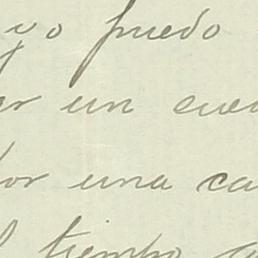 yo puedo
er un cue
or una ca
l tiempo